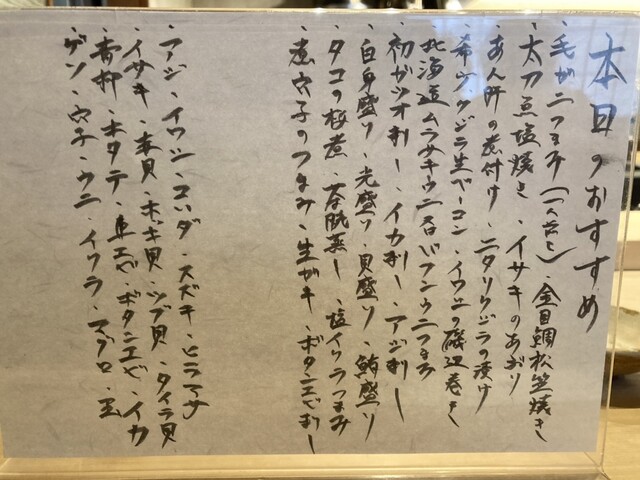 本日のおすすめ
・毛がニつまみ(一人前ヒ)・金目鯛松笠焼き
・太刀魚塩焼き・イサキのあぶり
・あん肝の煮付け・ニタリクジラの漬け
・希少クジラ生ベーコン・イワシの磯辺巻き
・北海道ムラサキウニ呑バフンウニつまみ
・初ガツオ刺し・イカ刺し・アジ刺し
・白身盛り・光盛り・貝盛り・鮪盛り
・タコの桜煮・茶碗蒸し・塩イクラつまみ
・煮穴子のつまみ・生ガキ・ボタンエビ刺し
・アジ・イワシ・コハダ・スズキ・ヒラマサ
・イサキ・赤貝・ホッキ貝・ツブ貝・タイラ貝
・青柳・ホタテ・車エビ・ボタンエビ・イカ
ゲソ・穴子・ウニ・イクラ・マグロ・玉